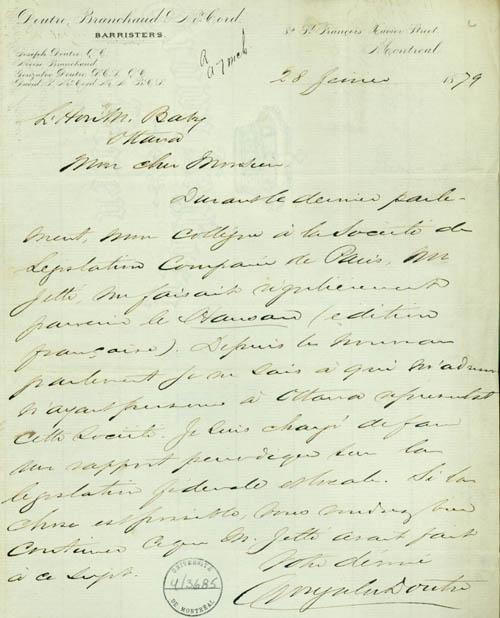 Doutre, Branchaud & McCord.
BARRISTERS.
Joseph Doutre, Q.C.
Moise Branchaud.
Gonzalve Doutre, D.C.L., Q.C.
David R. McCord, M.A., B.C.L.
8e St. François Xavier Street
Montreal
R
a 7 mch
28 fevrier 1879
L'Hon. M. Baby
Ottawa
Mon cher Monsieur
Durant le dernier parle-
ment, mon collègue à la Société de
Legislation Comparée de Paris, M.
Jetté, me faisait régulierement
parvenir le Hansard (edition
française). Depuis le nouveau
parlement je ne sais à qui m'adresser
n'ayant personne à Ottawa représentant
cette Société. Je suis chargé de faire
un rapport periodique sur la
legislation federale & locale. Si la
chose est possible, vous voudrez bien
continuer ce que M. Jetté avait fait
à ce sujet.
Votre dévoué
Gonzalve Doutre
UNIVERSITÉ
4/3685
DE MONTRÉAL